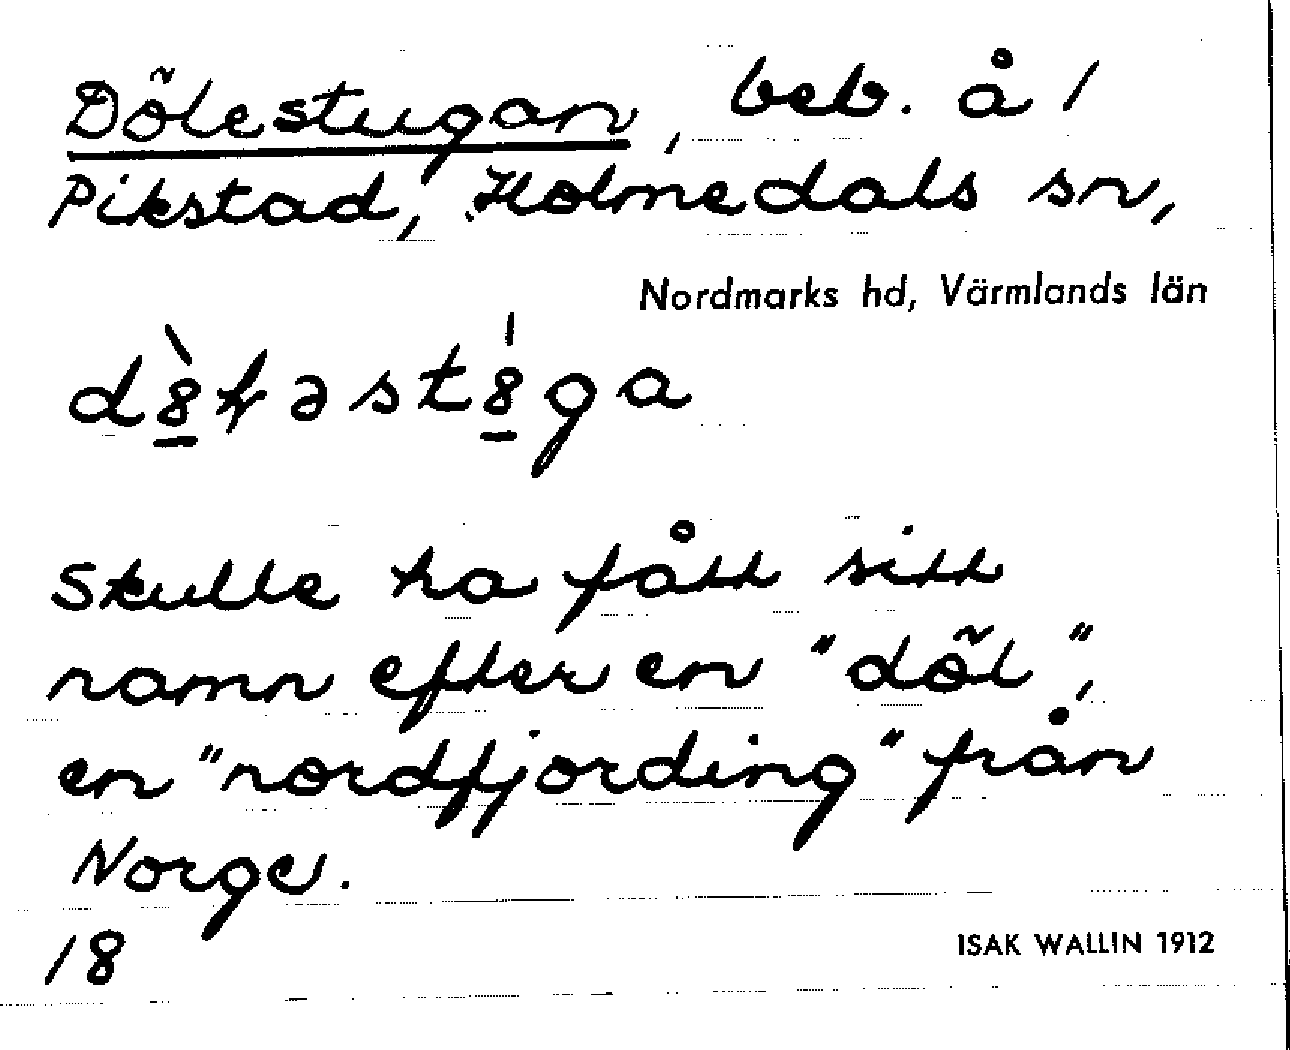 Dölestugan, beb. å /
Pikstad, Holmedals sn,
Nordmarks hd, Värmlands län
d8̲̀ɽəst8̲́ga
Skulle ha fått sitt
namn efter en "döl",
en "nordfjording" från
Norge.
18
ISAK WALLIN 1912